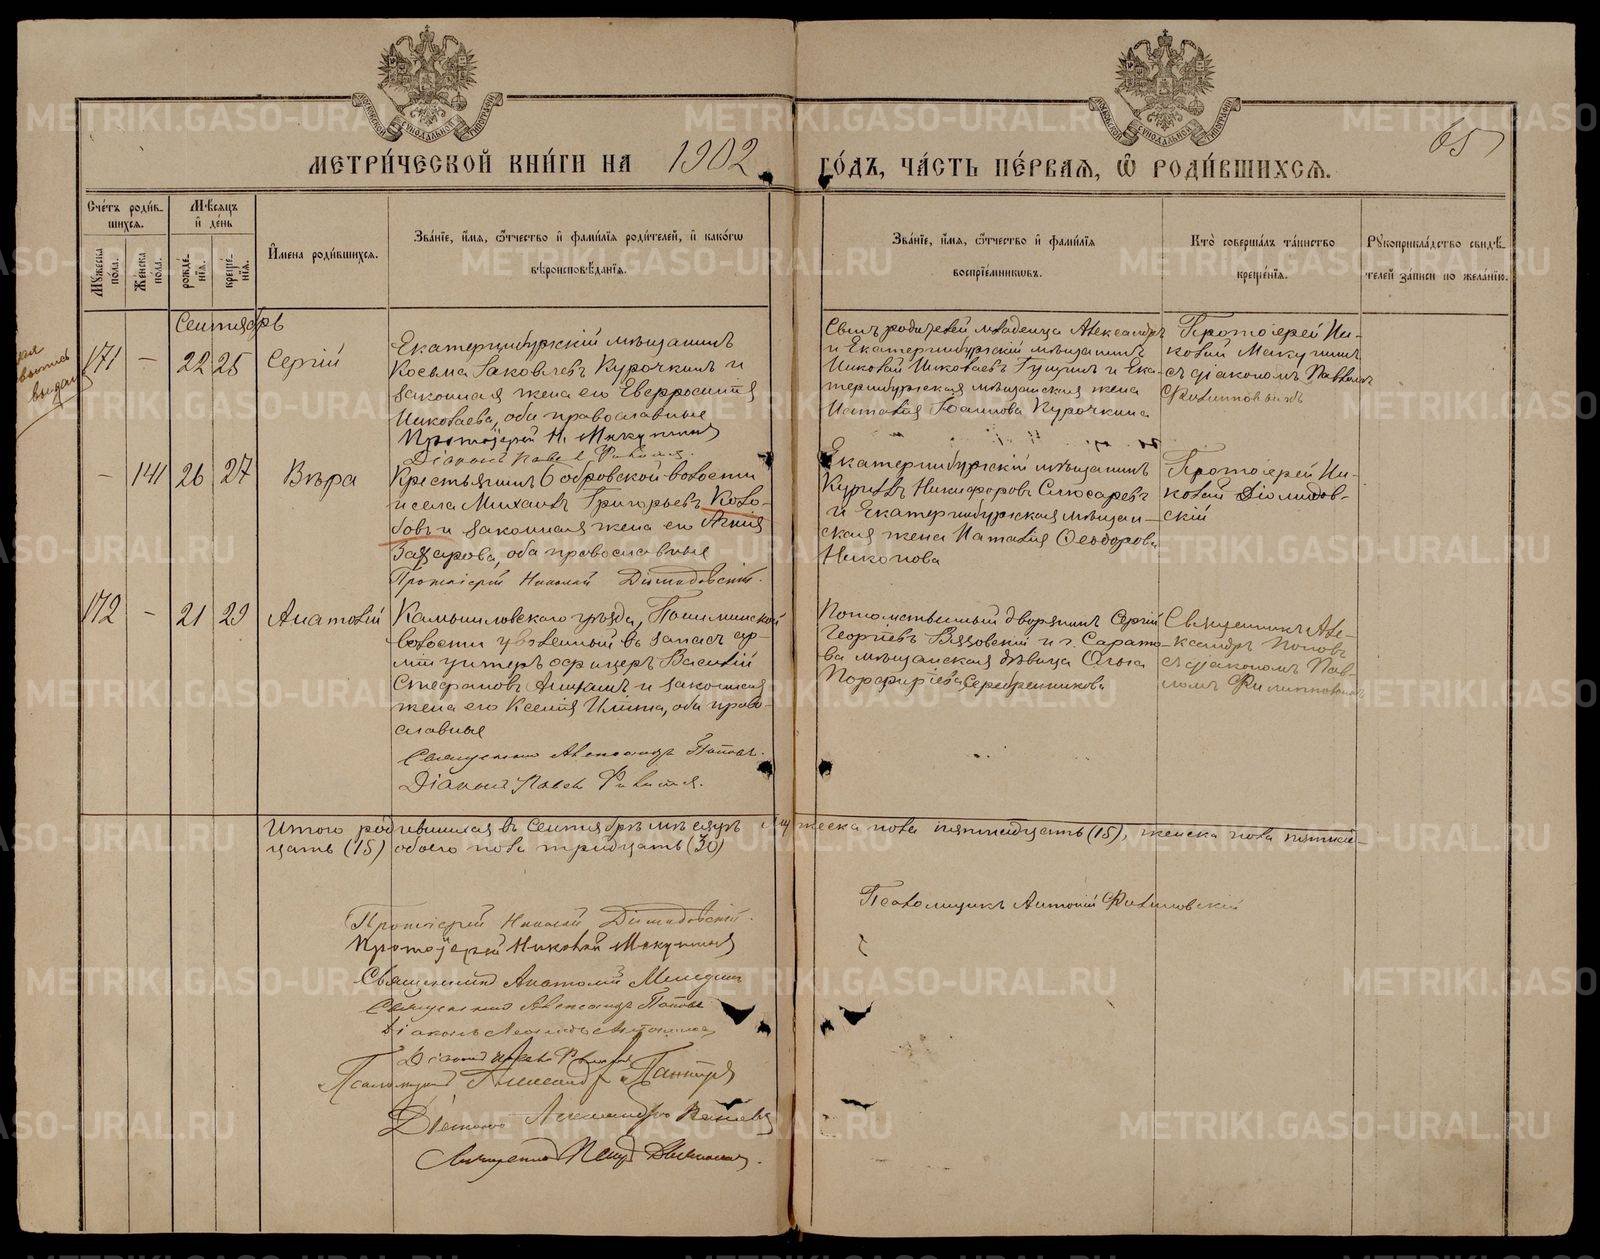 65
МЕТРИ́ЧЕСКОЙ КНИ́ГИ НА 1902 ГО́ДЪ, ЧА́СТЬ ПЕ́РВАѦ, Ѽ РОДИ́ВШИХСѦ.
Сче́тъ роди́в-
шихся.
Мѣ́сяцъ
и҆ де́нь
Му́жеска
пола.
Же́нска
пола.
рожде́-
нїѧ.
креще́-
нїѧ.
И҆мена роди́вшихся.
Зва́нїе, и҆́мѧ, ѻ҆́тчество и҆ фами́лїѧ роди́телей, и҆ како́гѡ
вѣроисповѣ́данїѧ.
Зва́нїе, и҆́мѧ, ѻ҆́тчество и҆ фами́лїѧ
воспрїе́мникѡвъ.
Кто̀ соверша́лъ та́инство
креще́нїѧ.
Рꙋкоприкла́дство свидѣ́-
телей за́писи по жела́нїю.
Сентябрь
171 — 22 25 Сергій
Екатеринбургскій мѣщанинъ
Косьма Яковлевъ Курочкинъ и
законная жена его Евфросинія
Николаева, оба православные
Протоіерей Н. Мякушинъ
Діаконъ Павелъ
Сынъ родителей младенца Александръ
и Екатеринбургскій мѣщанинъ
Николай Николаевъ и Ека-
теринбургская мѣщанская жена
Наталія Іоаннова Курочкина
Протоіерей Ни-
колай Мякушинъ
съ діакономъ Павломъ
— 141 26 27 Вѣра
Крестьянинъ Бобровской волости
и села Михаилъ Григорьевъ Коло-
бовъ и законная жена его Агнія
Захарова, оба православные
Протоіерей Николай Діомидовскій.
Екатеринбургскій мѣщанинъ
Кириллъ Никифоровъ Слюсаревъ
и Екатеринбургская мѣщан-
ская жена Наталія Ѳеодорова
Никонова
Протоіерей Ни-
колай Діомидов-
скій
172 — 21 29 Анатолій
Камышловскаго уѣзда,
волости уволенный въ запасъ ар-
міи унтеръ офицеръ Василій
Стефановъ и законная
жена его Ксенія Ильина, оба право-
славные
Священникъ Александръ Поповъ.
Діаконъ Павелъ
Потомственный дворянинъ Сергій
Георгіевъ Вязовскій и г. Сарато-
ва мѣщанская дѣвица Ольга
Порфиріева Серебренникова
Священникъ Але-
ксандръ Поповъ
съ діакономъ Пав-
ломъ
Итого родившихся въ Сентябрѣ мѣсяцѣ мужеска пола пятнадцать (15), женска пола пятнад-
цать (15) обоего пола тридцать (30)
Псаломщикъ Антоній
Протоіерей Николай Діомидовскій.
Протоіерей Николай Мякушинъ
Священникъ Анатолій
Священникъ Александръ Поповъ
Діаконъ Леонидъ
Діаконъ Павелъ
Псаломщикъ Александръ
Діаконъ Александръ
Священникъ
METRIKI.GASO-URAL.RU